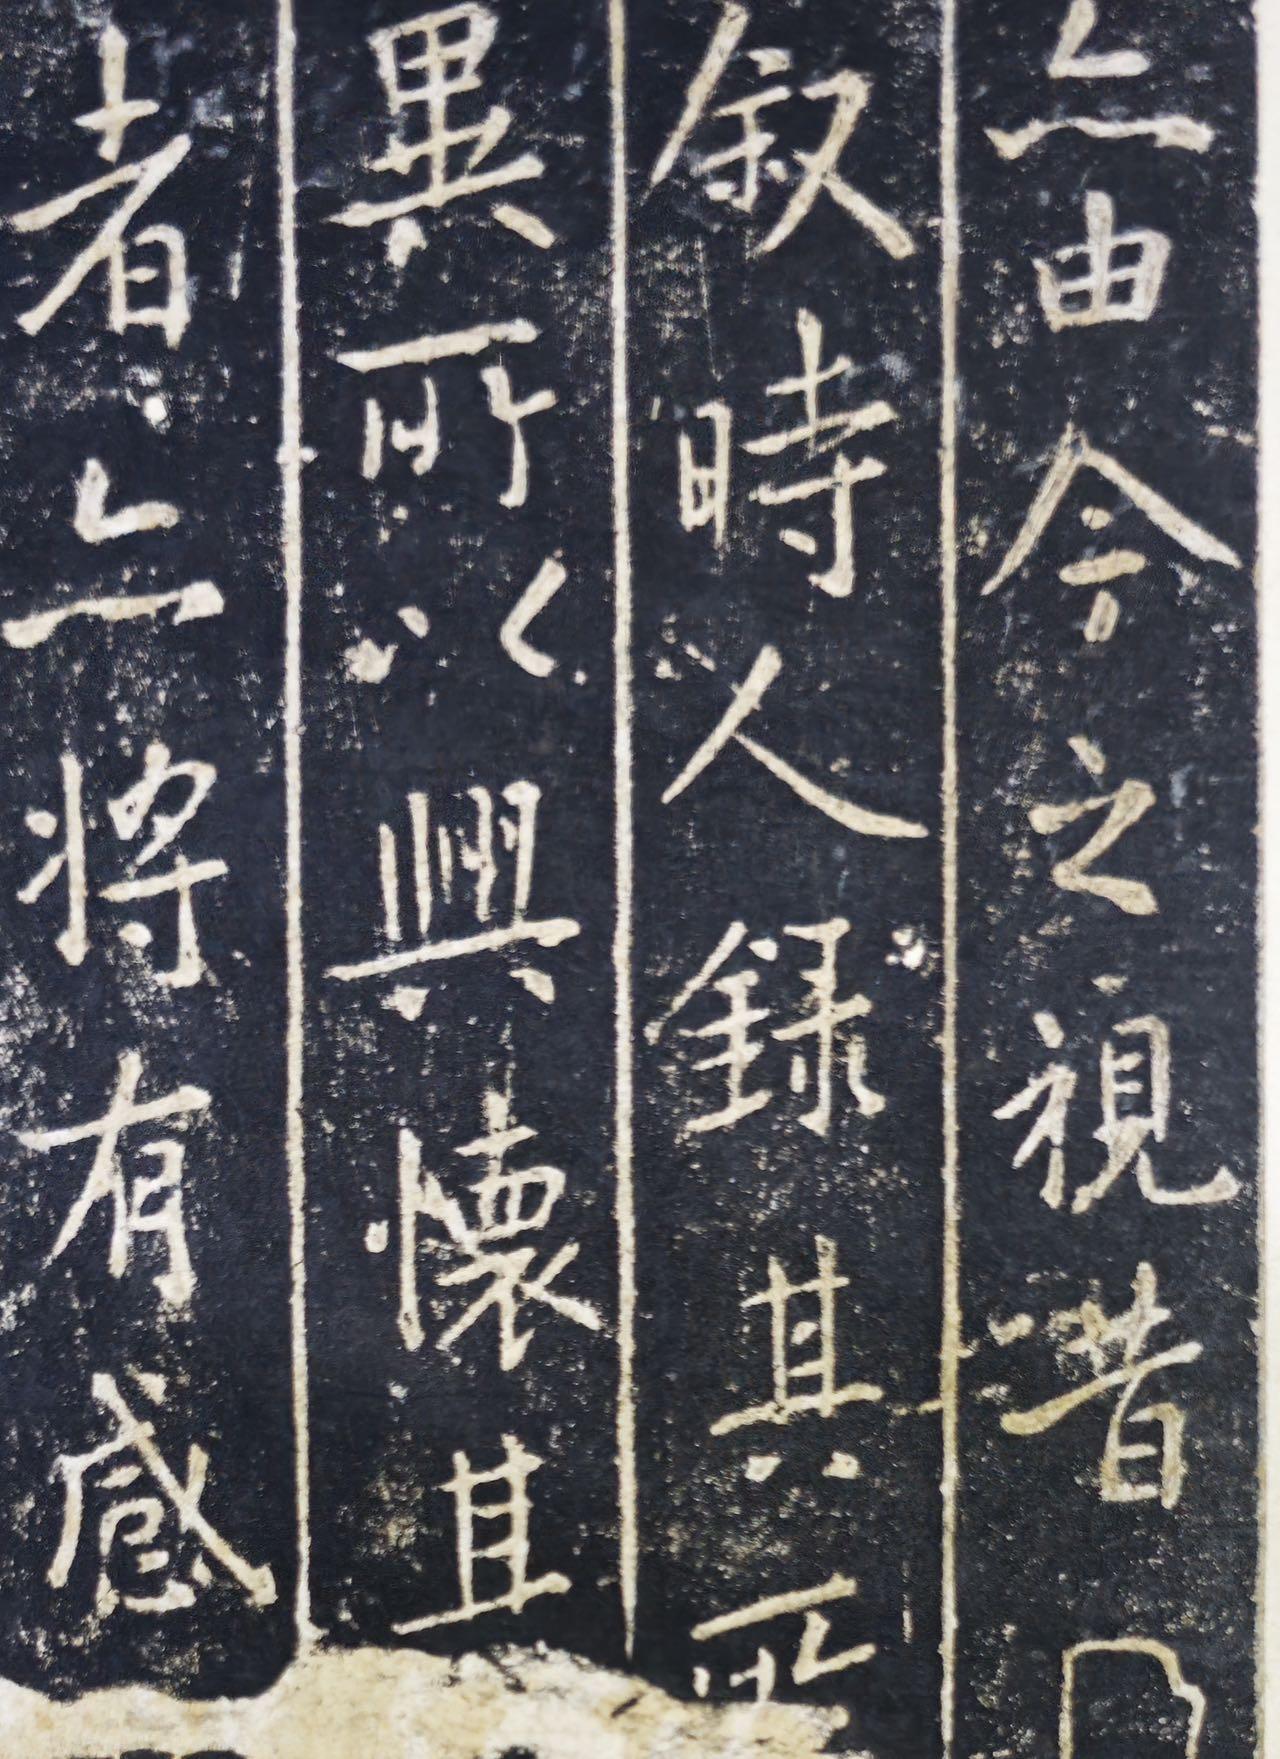 亦由今之視昔
叙時人録其所
異所以興懷其
者亦将有感